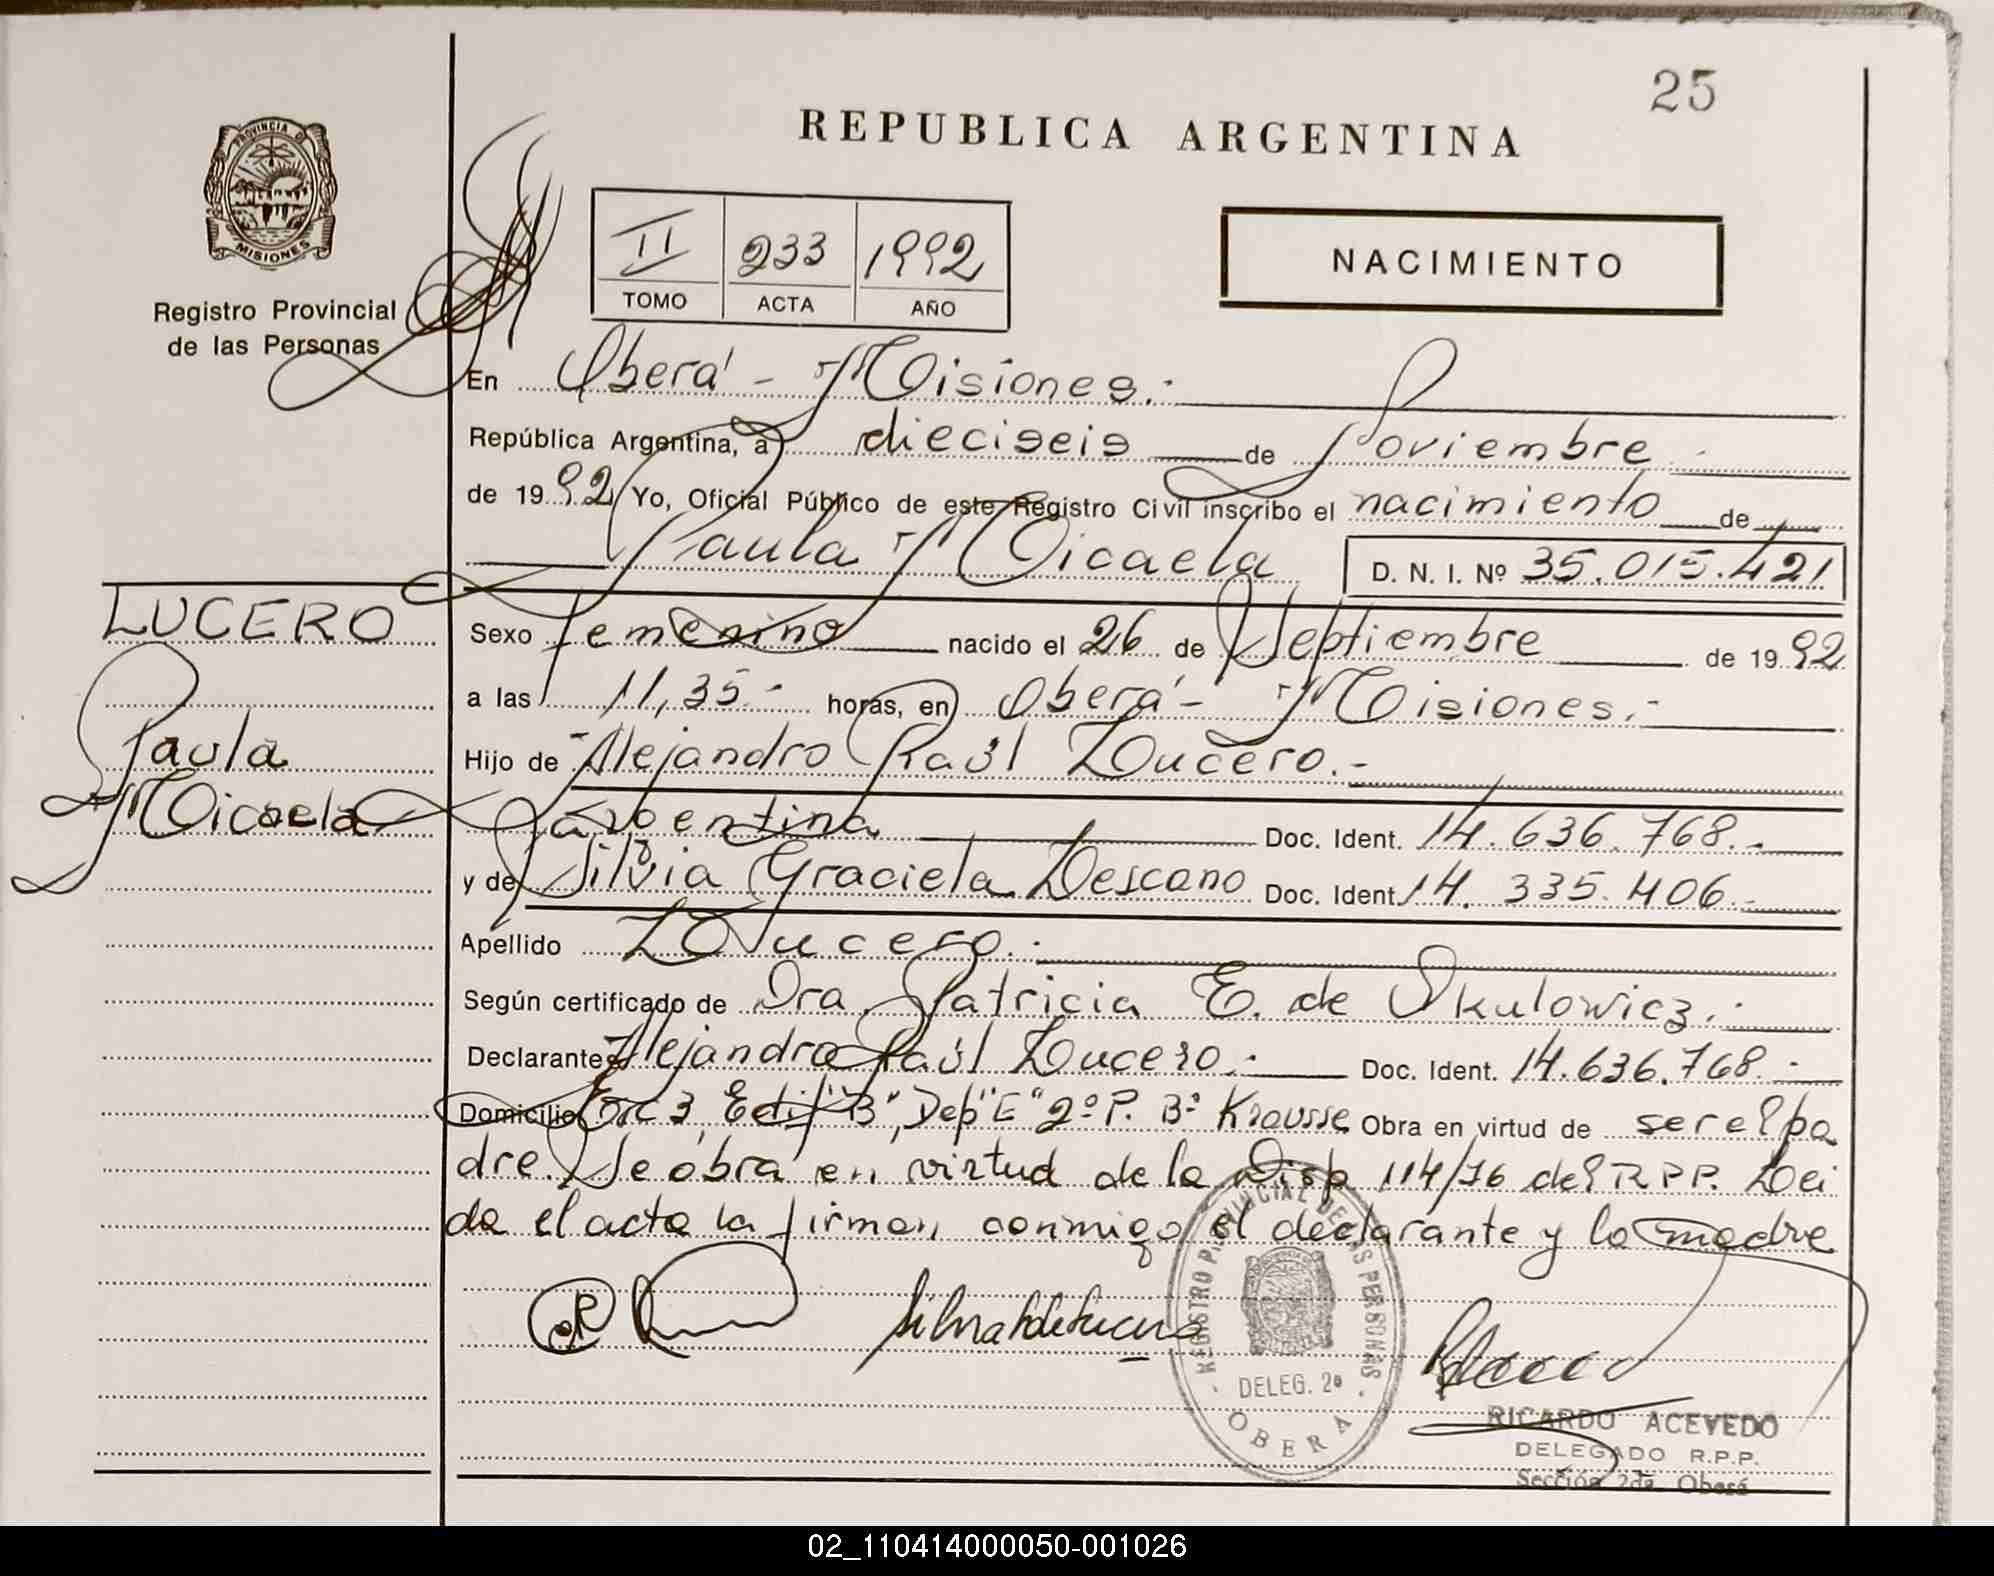 25
REPUBLICA ARGENTINA
PROVINCIA DE
MISIONES
Registro Provincial
de las Personas
II 233 1992
TOMO ACTA AÑO
NACIMIENTO
En Oberá - Misiones.-
República Argentina, a dieciseis de Noviembre
de 1992 Yo, Oficial Público de este Registro Civil inscribo el nacimiento de
Paula Micaela D. N. I. Nº 35.015.421
LUCERO
Paula
Micaela
Sexo femenino nacido el 26 de Septiembre de 1992
a las 11,35.- horas, en Oberá - Misiones.-
Hijo de Alejandro Raúl Lucero.-
argentina Doc. Ident. 14.636.768.-
y de Silvia Graciela Lescano Doc. Ident. 14.335.406.-
Apellido Lucero.-
Según certificado de Dra. Patricia E. de Skulowicz.-
Declarante Alejandro Raúl Lucero.- Doc. Ident. 14.636.768.-
Domicilio Esc 3, Edif "B", Dep "E" 2º P. Bº Krausse Obra en virtud de ser el pa
dre. Se obra en virtud de la Disp 114/76 del R.P.P. Lei
da el acta la firman conmigo el declarante y la madre
REGISTRO PROVINCIAL DE LAS PERSONAS
DELEG. 2ª
OBERA
RICARDO ACEVEDO
DELEGADO R.P.P.
Sección 2da. Oberá
02_110414000050-001026